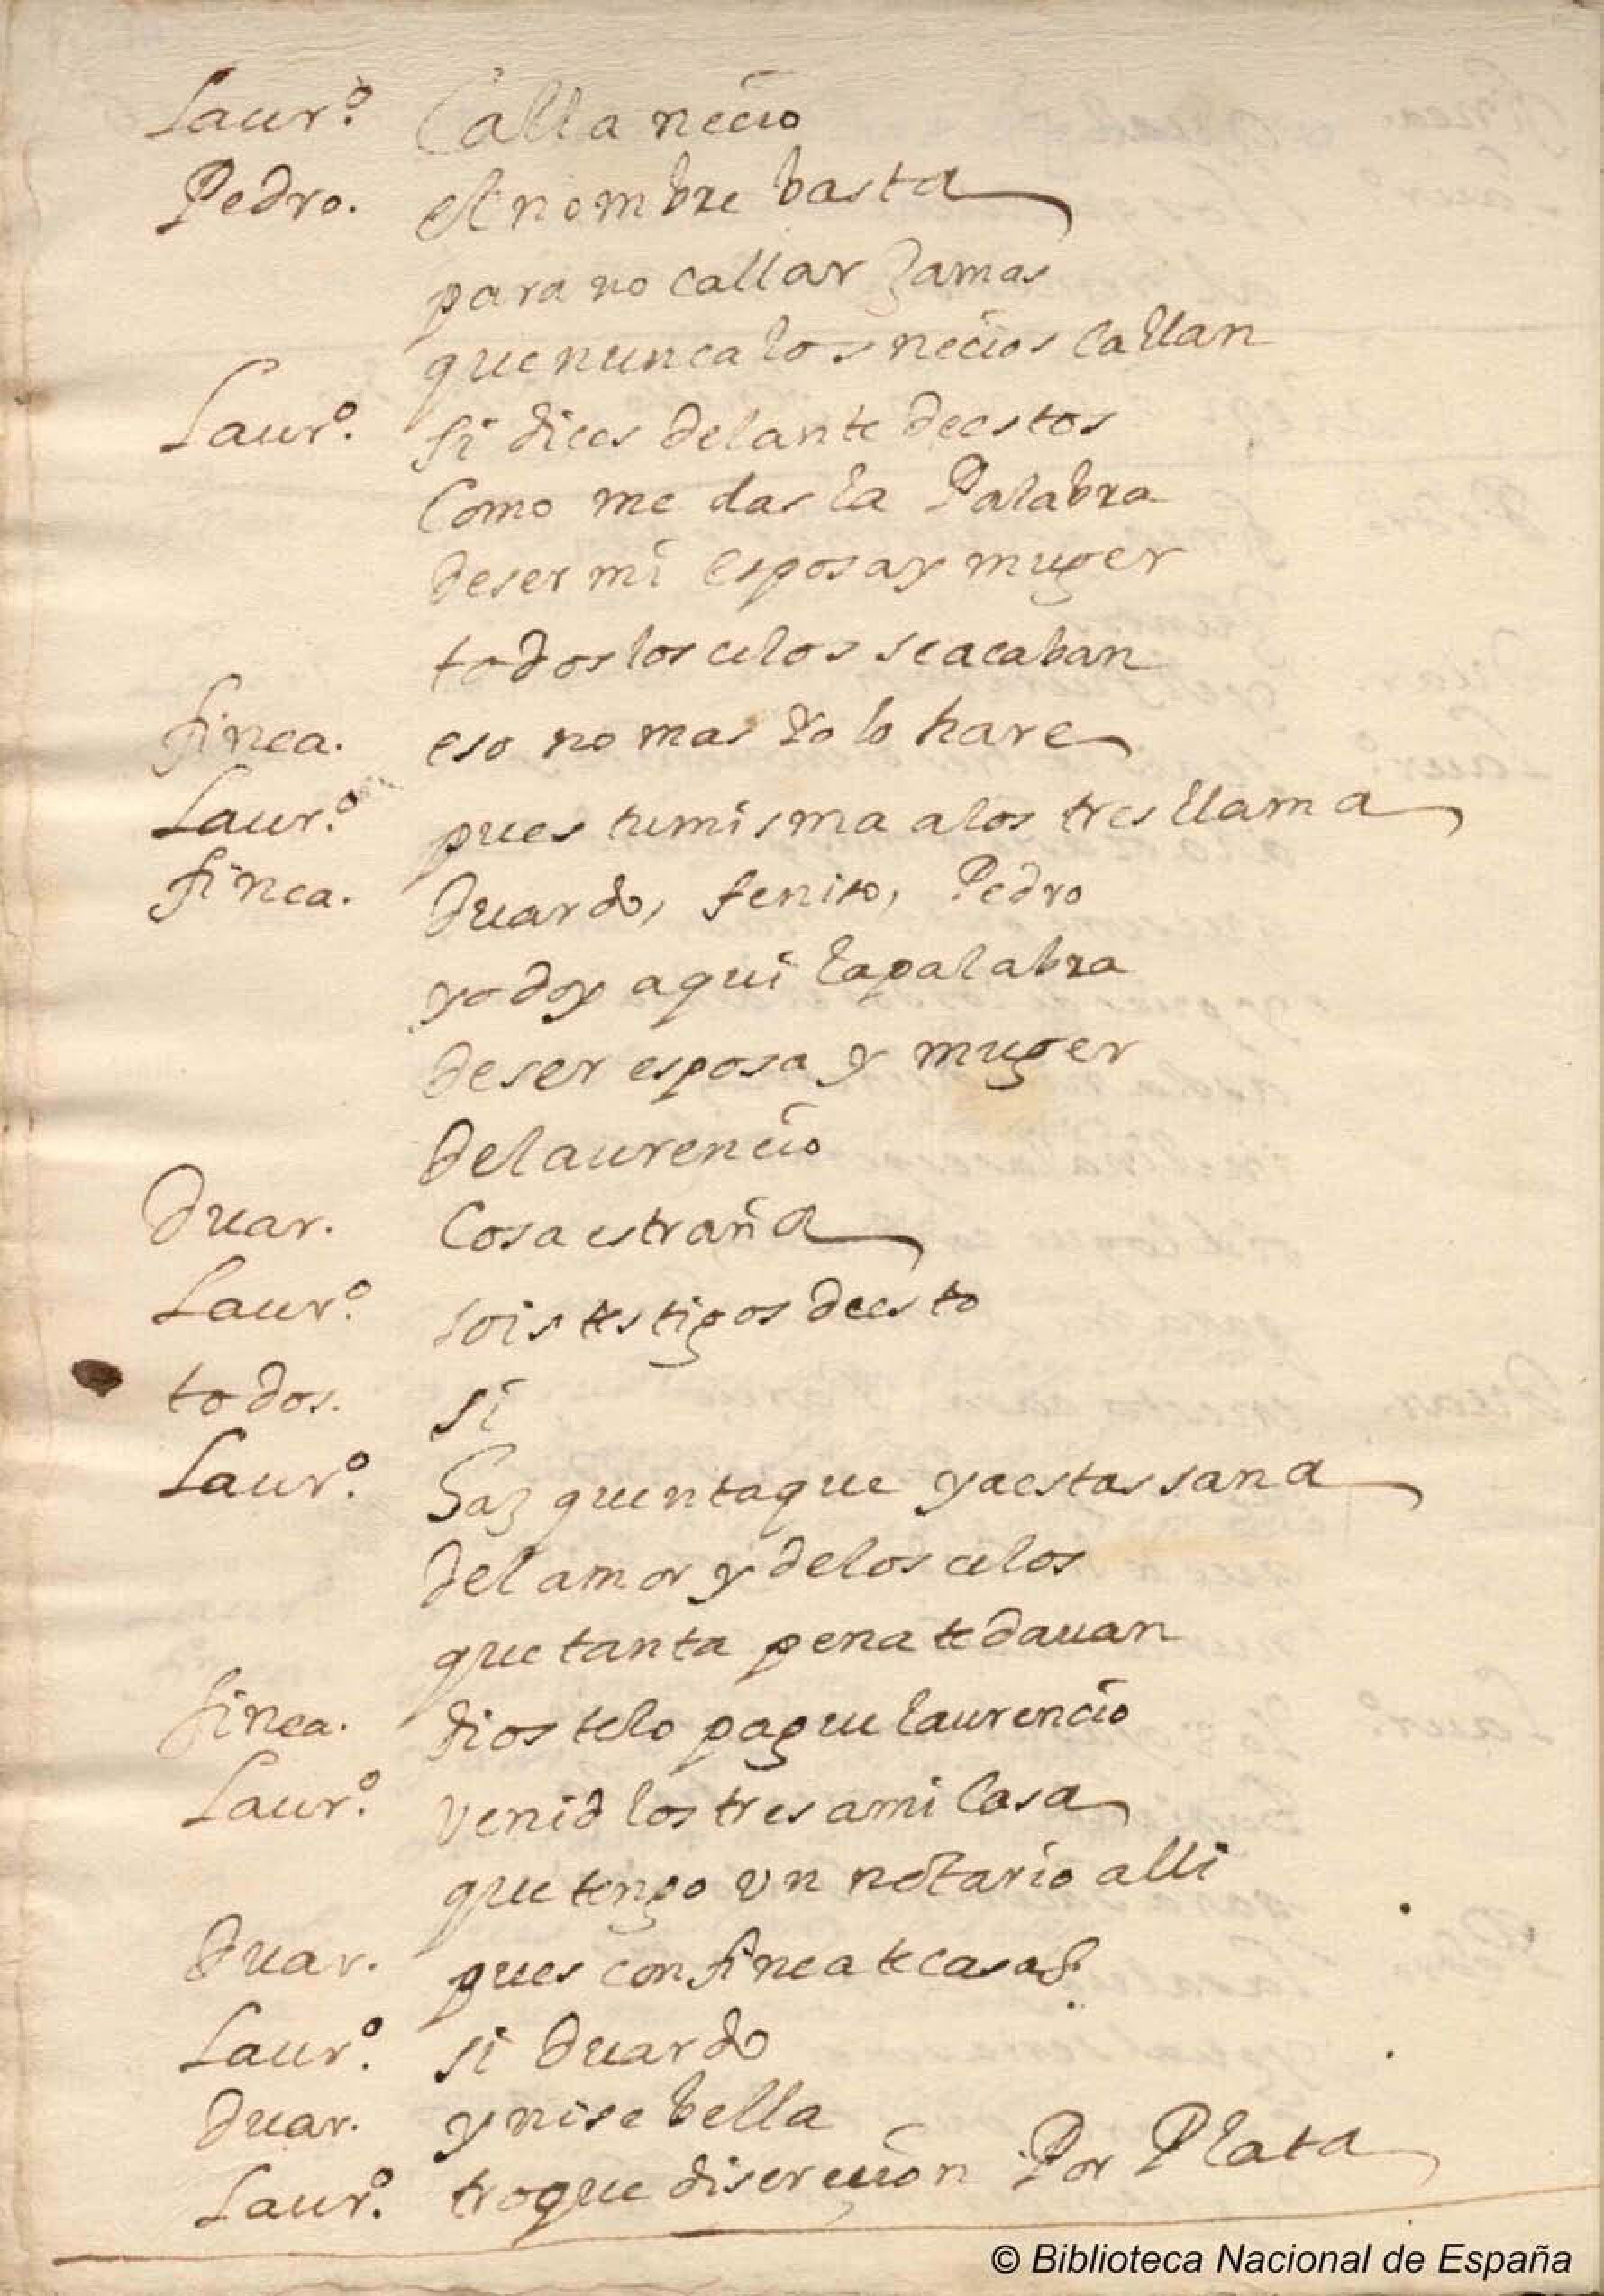 Laur.º Calla necio
Pedro. el nombre basta
para no callar Jamas
que nunca los necios callan
Laur.º si dices delante de estos
Como me das la Palabra
de ser mi esposa y muger
todos los celos se acaban
finea. eso no mas Yo lo hare
Laur.º pues tu misma a los tres llama
finea. Duardo, feniso, Pedro
yo doy aqui la palabra
de ser esposa y muger
de laurencio
Duar. Cosa estraña
Laur.º sois testigos de esto
todos. si
Laur.º haz quenta que ya estas sana
del amor y de los celos
que tanta pena te dauan
finea. dios te lo pague laurencio
Laur.º venid los tres a mi Casa
que tengo vn notario alli
Duar. pues con finea te casas?
Laur.º si Duardo
Duar. y nise bella
Laur.º troque discrecion Por Plata
© Biblioteca Nacional de España